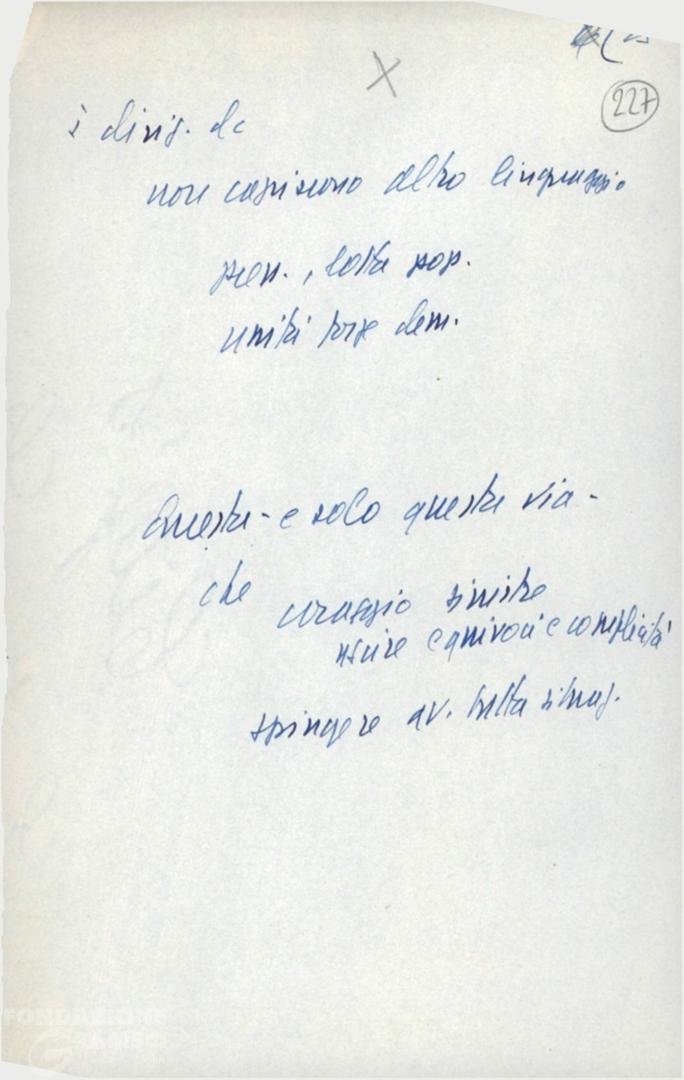 227
i dirig. dc
non capiscono altro linguaggio
pres., lotta pop.
unità forze dem.
Questa - e solo questa via -
che
coraggio sinistre
uscire equivoci e complicità
spingere av. tutta situaz.
FONDAZIONE
GRAMSCI